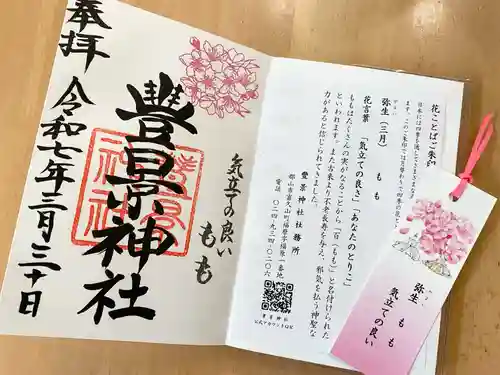 奉拝
令和七年三月三十日
豊景神社
気立ての良い
もも
花ことばご朱印
弥生(三月) もも
花言葉 「気立ての良さ」「あなたのとりこ」
ももはたくさんの実がなることから「百(もも)」と名付けられた
といわれます。また古来より不老長寿を与え、邪気を払う神聖な
力があると信じられてきました。
豊景神社社務所
郡山市富久山町福原字福原一番地
電話 〇二四-九三四-〇二〇六
豊景神社
公式アカウントQR
弥生 もも
気立ての良い